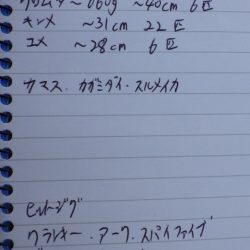 クロムツ ~660g ~40cm 6匹
キンメ ~31cm 22匹
ユメ ~28cm 6匹
カマス・カガミダイ・スルメイカ
ヒットジグ
クランキー・アーク・スパイファイブ